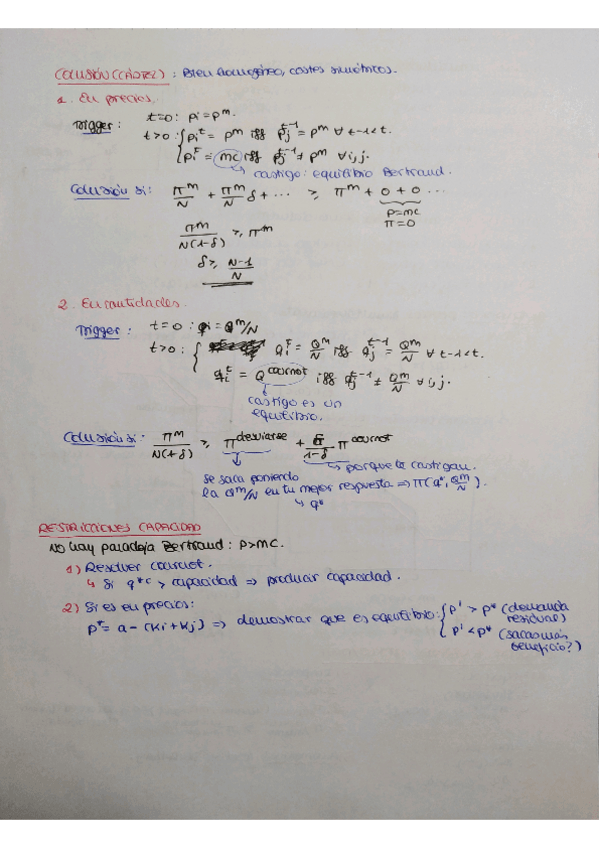 COLUSIÓN (CÁRTEL) : Bien homogéneo, costes simétricos.
1. En precios.
Trigger : t=0 : pi = p^m.
t>0 : { pi^t = p^m iff pj^t-1 = p^m ∀ t-1<t.
pi^t = mc iff pj^t-1 ≠ p^m ∀ i,j.
castigo: equilibrio Bertrand.
Colusión si : π^m/N + π^m/N δ + ... ≥ π^m + 0 + 0 ...
P=mc
π=0
π^m/N(1-δ) ≥ π^m
δ ≥ N-1/N
2. En cantidades.
Trigger : t=0 : qi = Q^m/N
t>0 : { qi^t = Q^m/N iff qj^t-1 = Q^m/N ∀ t-1<t.
qi^t = Q^cournot iff qj^t-1 ≠ Q^m/N ∀ i,j.
castigo es un
equilibrio.
Colusión si : π^m/N(1-δ) ≥ π^desviarse + δ/1-δ π^cournot
porque te castigan.
se saca poniendo
la Q^m/N en tu mejor respuesta ⇒ π(q*, Q^m/N).
↳ q*
RESTRICCIONES CAPACIDAD
No hay paradoja Bertrand : P>MC.
1) Resolver cournot.
↳ Si q*^c > capacidad ⇒ producir capacidad.
2) Si es en precios:
p* = a - (Ki + Kj) ⇒ demostrar que es equilibrio: { p' > p* (demanda
residual)
p' < p* (sacas más
beneficio?)